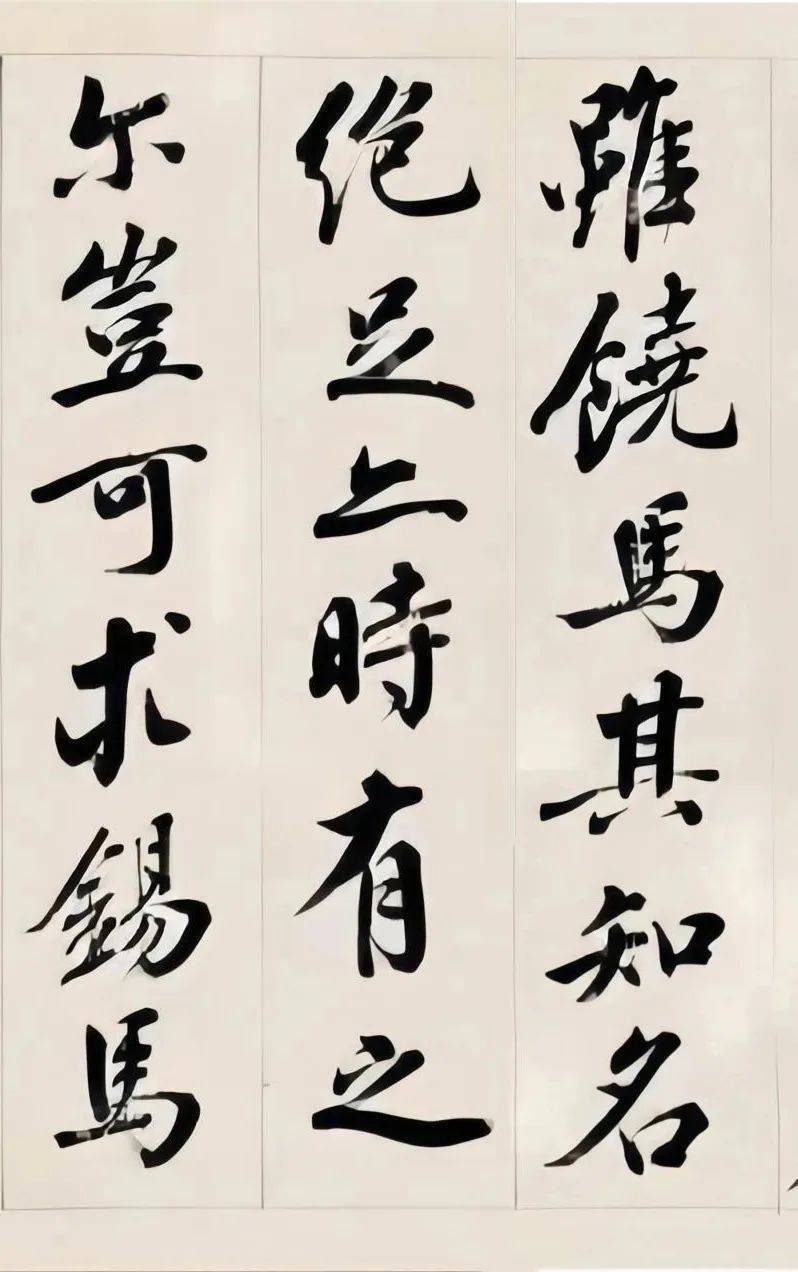 雖饒馬其知名
絶足上時有之
尔豈可求錫馬